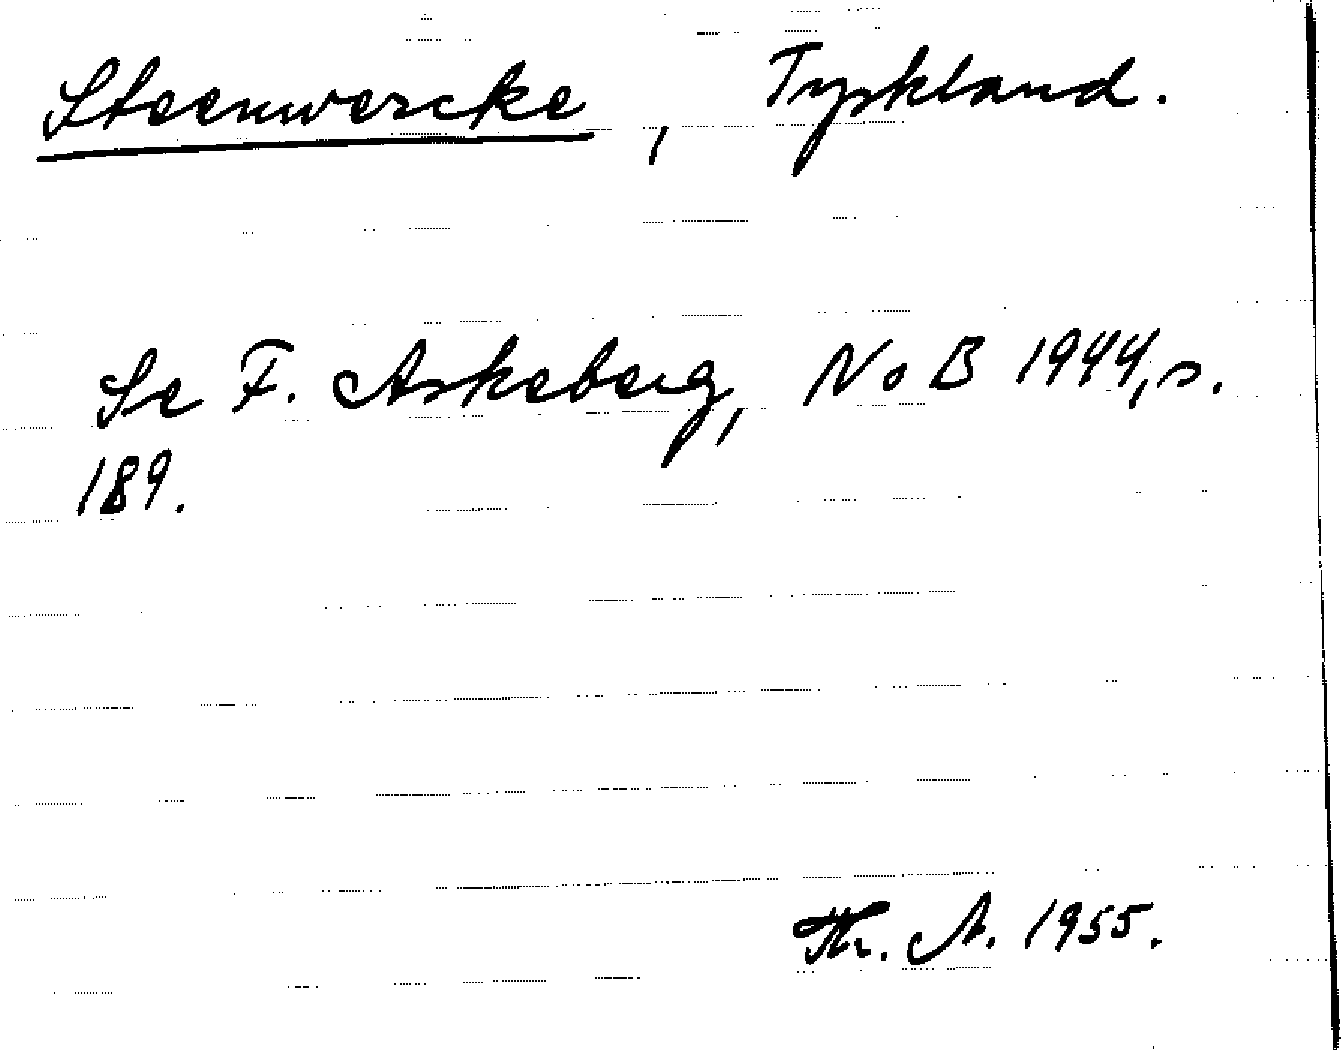 Steenwercke, Tyskland.
Se F. Askeberg, NoB 1944, s.
189.
Th. A. 1955.